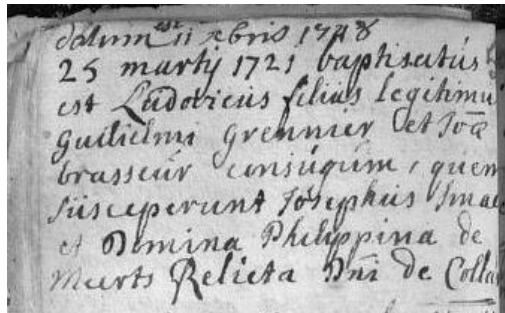 datum est 11 xbris 1748
25 martij 1721 baptisatus
est Ludovicus filius legitimu
Guilielmi Grennier et Joae
brasseur conjugum, quem
susceperunt Josephus Smae
et Domina Philippina de
Meerts Relicta Dni de Colla